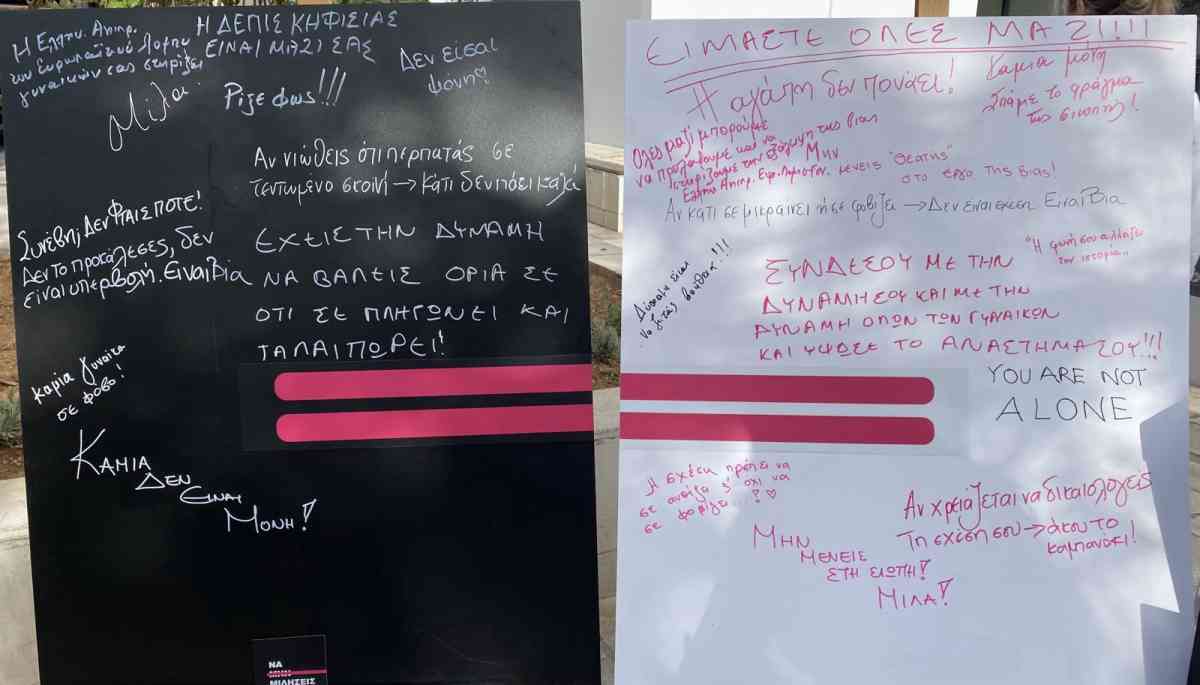 Η Ελλην. Αντιπρ.
του Ευρωπαϊκού Λόμπυ
γυναικών σας στηρίζει
Η ΔΕΠΙΣ ΚΗΦΙΣΙΑΣ
ΕΙΝΑΙ ΜΑΖΙ ΣΑΣ
Δεν είσαι
μόνη
Μίλα.
Ρίξε φως!!!
Αν νιώθεις ότι περπατάς σε
τεντωμένο σκοινί → κάτι δεν πάει καλά
Συνέβη; Δεν Φταις ΠΟΤΕ!
Δεν το προκάλεσες, δεν
είναι υπερβολή. Είναι Βία
ΕΧΕΙΣ ΤΗΝ ΔΥΝΑΜΗ
ΝΑ ΒΑΛΕΙΣ ΟΡΙΑ ΣΕ
ΟΤΙ ΣΕ ΠΛΗΓΩΝΕΙ ΚΑΙ
ΤΑΛΑΙΠΩΡΕΙ!
καμία γυναίκα
σε φόβο!
ΚΑΜΙΑ
ΔΕΝ
ΕΙΝΑΙ
ΜΟΝΗ!
ΝΑ
ΜΗΝ
ΜΙΛΗΣΕΙΣ
ΕΙΜΑΣΤΕ ΟΛΕΣ ΜΑΖΙ!!!
Η αγάπη δεν πονάει!
Καμια μόνη
Σπάμε το φράγμα
της σιωπής!
Όλες μαζί μπορούμε
να προλάβουμε και να
στηρίξουμε την εξάλειψη της βίας
Ελλην. Αντιπρ. Ευρ. Λόμπυ Γυν.
Μην
μένεις "θεατής"
στο έργο της βίας!
Αν κάτι σε μικραίνει ή σε φοβίζει → Δεν είναι σχέση Είναι Βία
Δύναμη είναι
να ζητάς βοήθεια!!!
"Η φωνή σου αλλάζει
την ιστορία"
ΣΥΝΔΕΣΟΥ ΜΕ ΤΗΝ
ΔΥΝΑΜΗ ΣΟΥ ΚΑΙ ΜΕ ΤΗΝ
ΔΥΝΑΜΗ ΟΛΩΝ ΤΩΝ ΓΥΝΑΙΚΩΝ
ΚΑΙ ΥΨΩΣΕ ΤΟ ΑΝΑΣΤΗΜΑ ΣΟΥ!!!
YOU ARE NOT
ALONE
Η σχέση πρέπει να
σε ανοίγει κ' όχι να
σε φοβίζει..!
Αν χρειάζεται να δικαιολογείς
τη σχέση σου → άκου το
καμπανάκι!
ΜΗΝ
ΜΕΝΕΙΣ
ΣΤΗ ΣΙΩΠΗ!
ΜΙΛΑ!